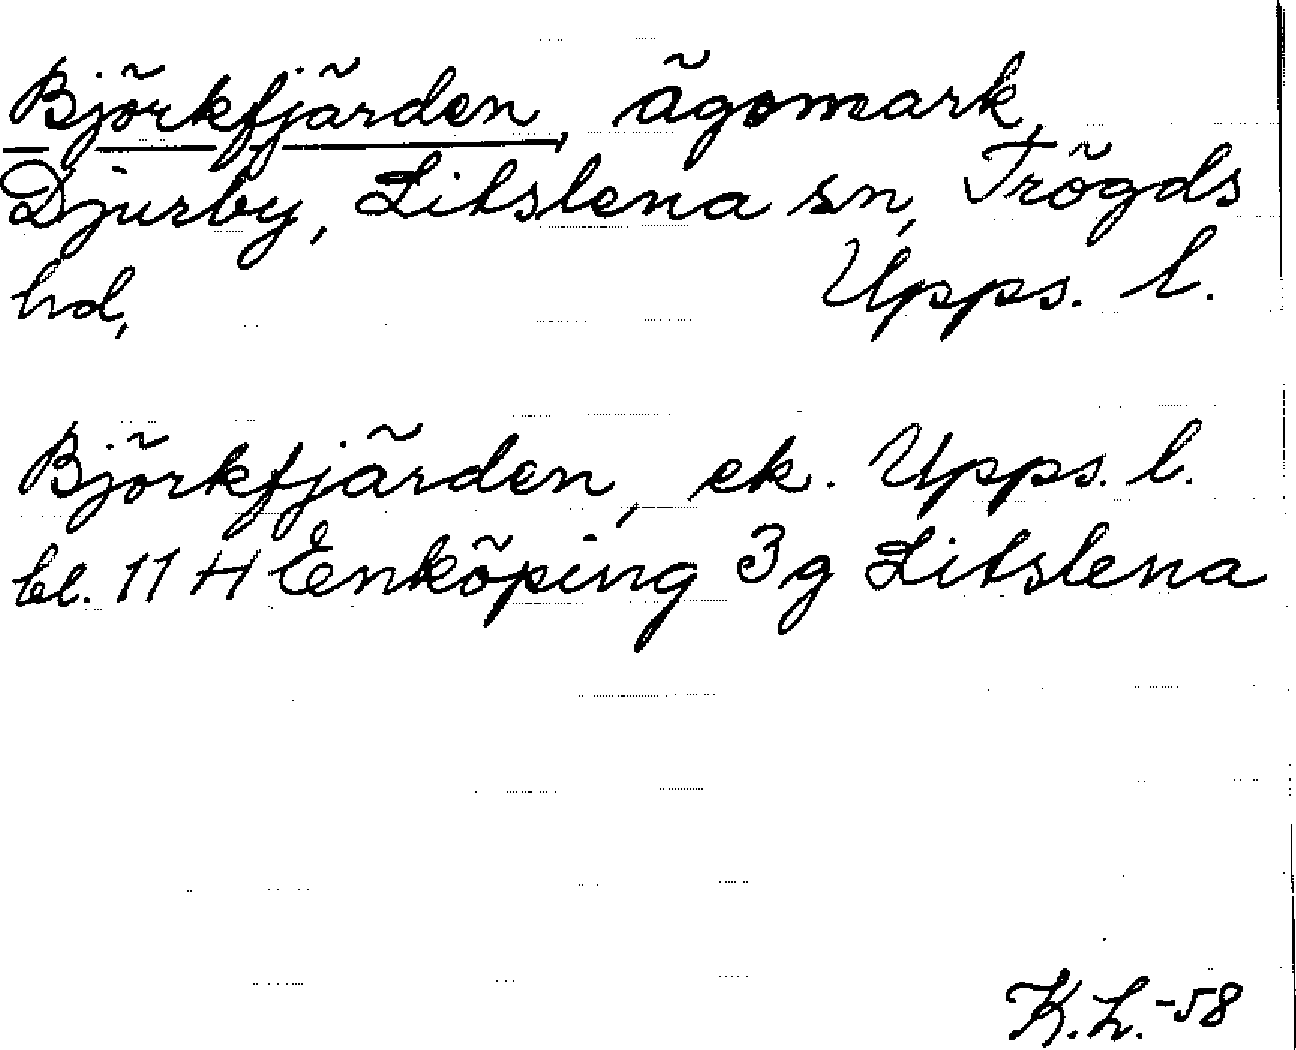 Björkfjärden, ägomark,
Djurby, Litslena sn, Trögds
hd, Upps. l.
Björkfjärden, ek. Upps. l.
bl. 11 H Enköping 3g Litslena
K.L.-58